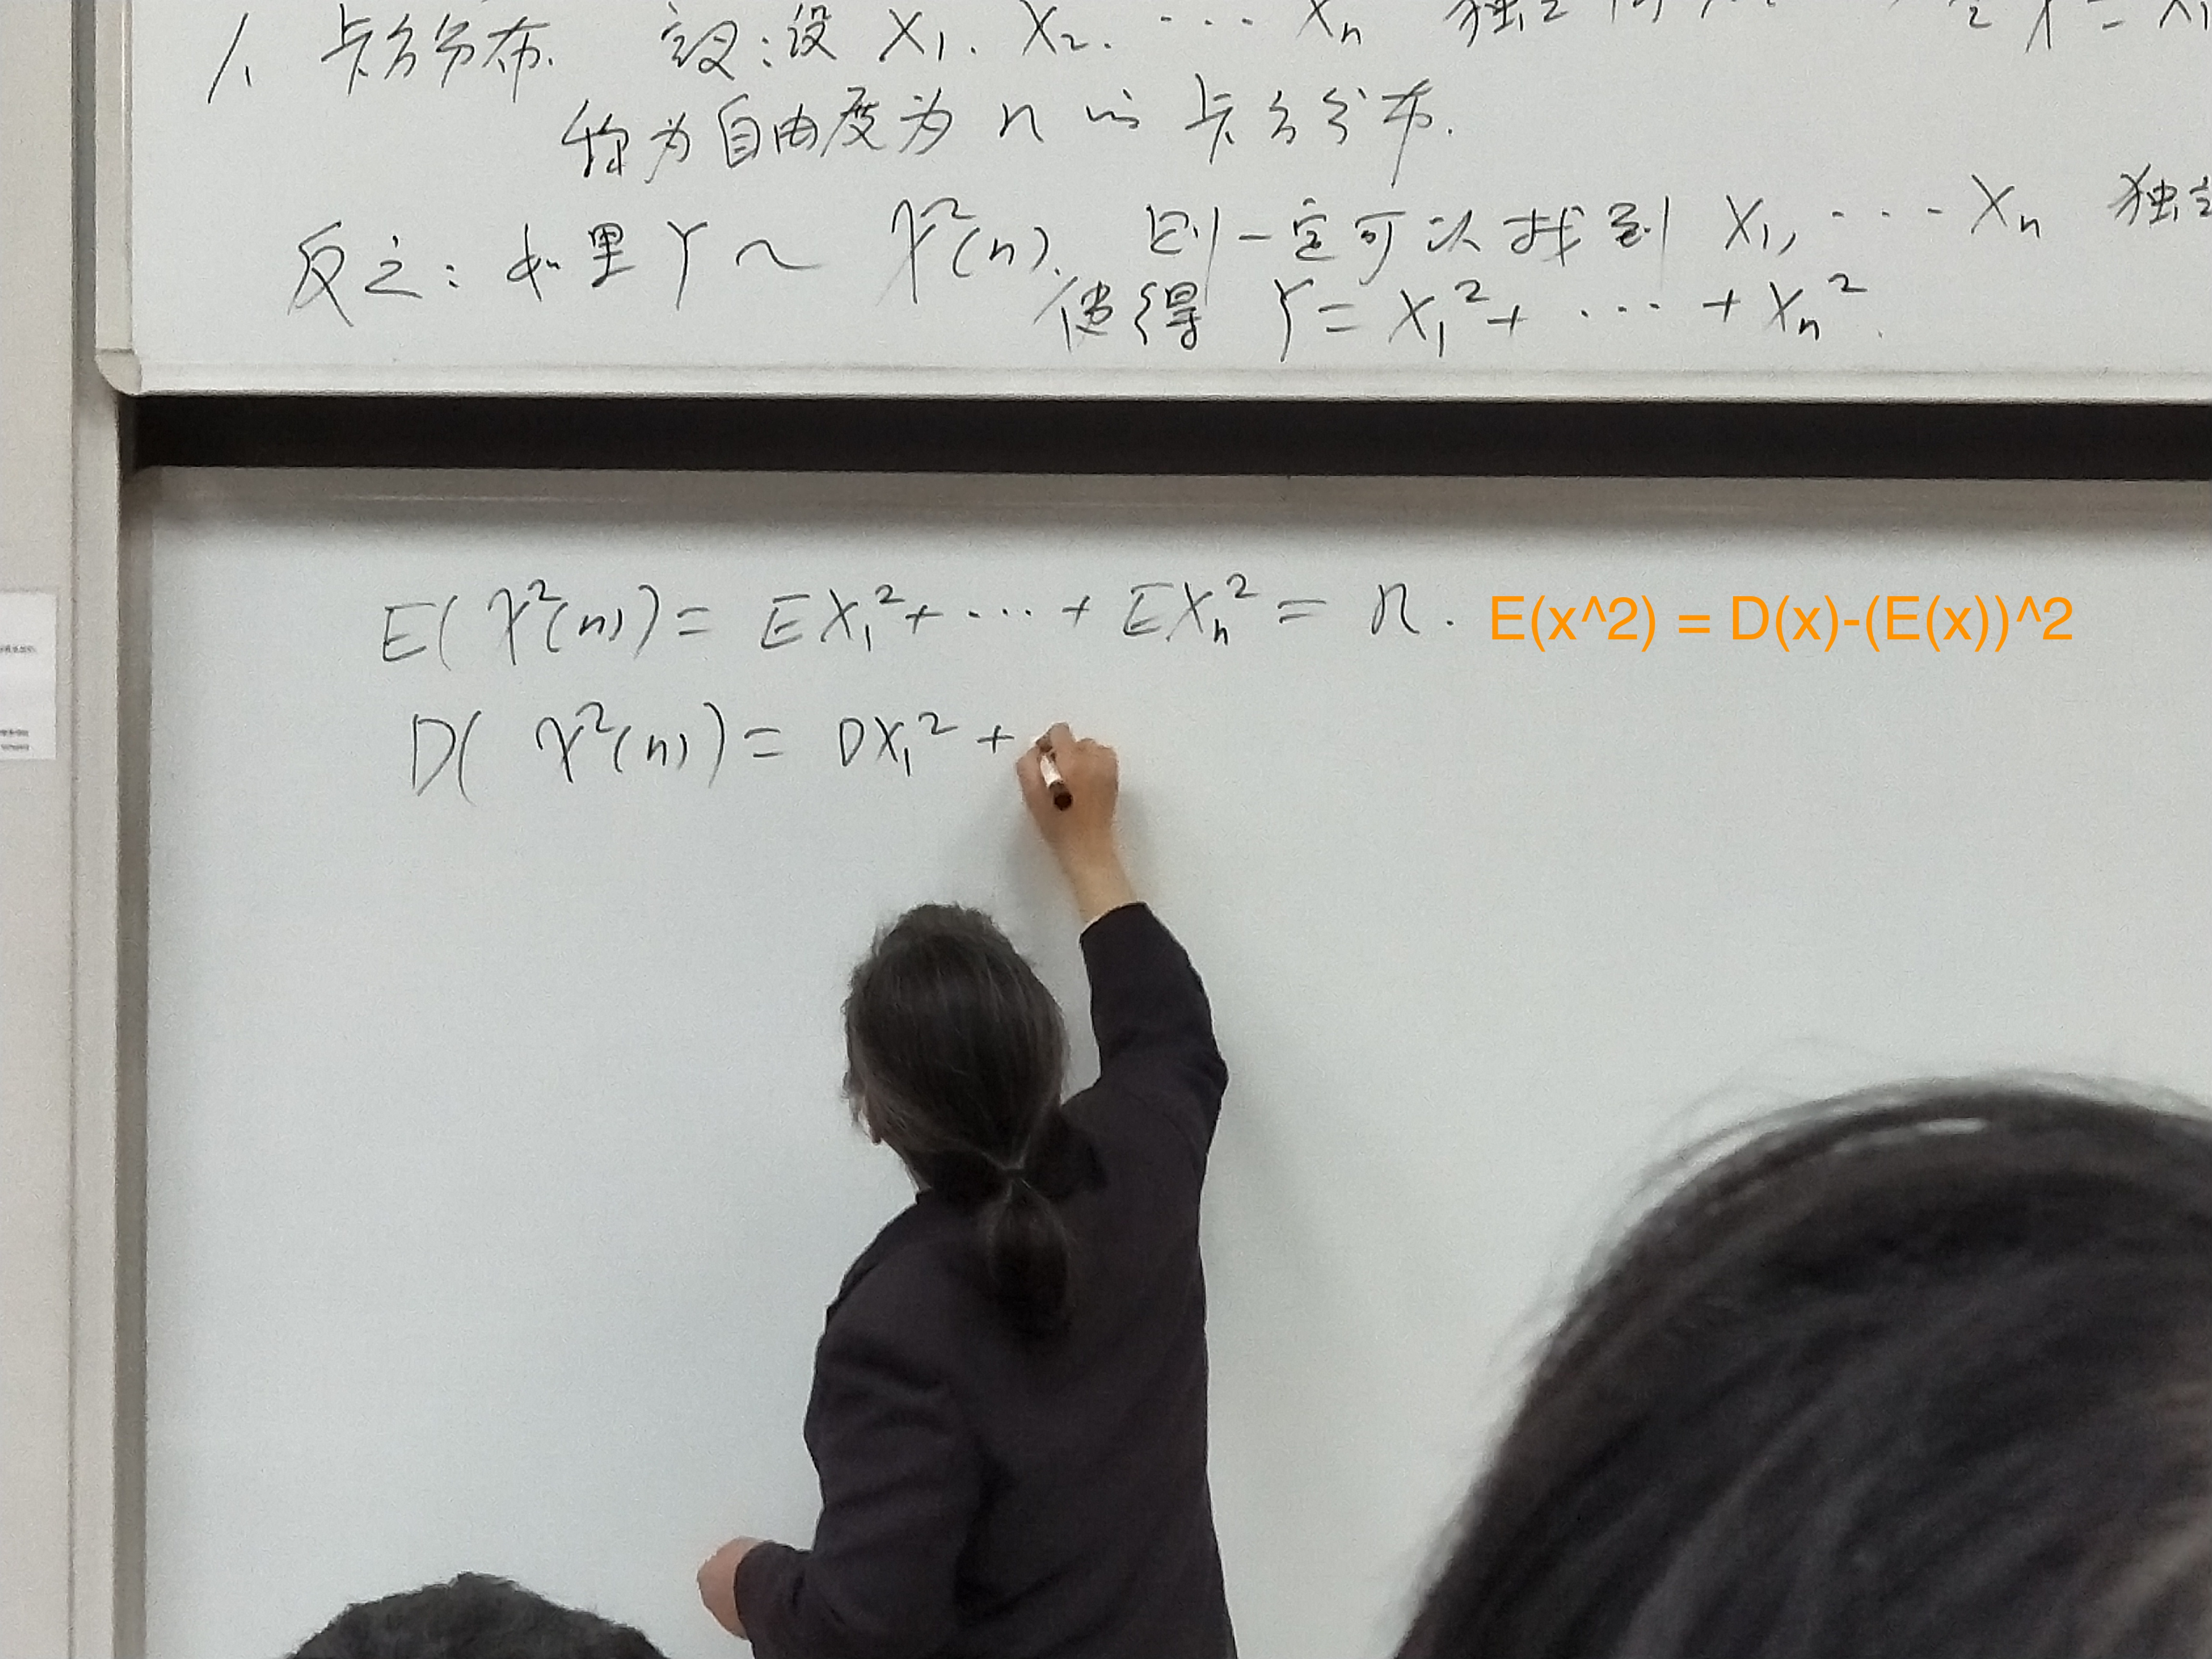 1. 卡方分布. 定义:设 X₁. X₂. ⋯ Xₙ 独立
称为自由度为 n 的 卡方分布.
反之: 如果 Y ~ χ²(n). 则一定可以找到 X₁, ⋯ Xₙ 独立
使得 Y = X₁² + ⋯ + Xₙ².
E( χ²(n) ) = EX₁² + ⋯ + EXₙ² = n. E(x^2) = D(x)-(E(x))^2
D( χ²(n) ) = DX₁² +